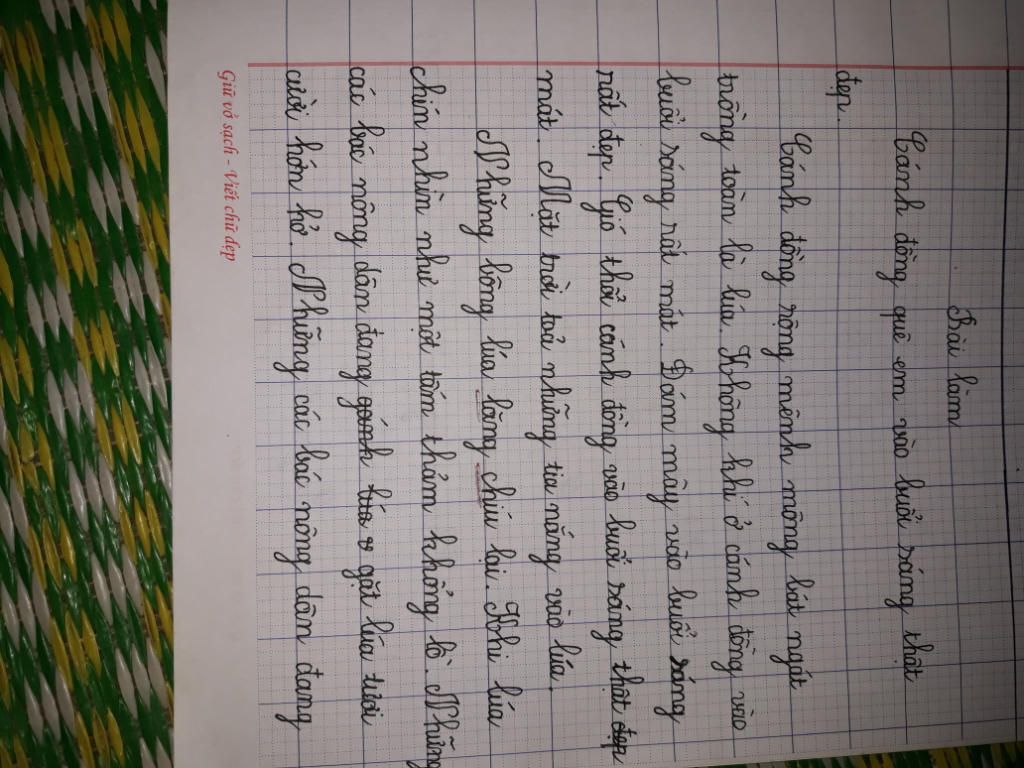 Bài làm
Cánh đồng quê em vào buổi sáng thật
đẹp.
Cánh đồng rộng mênh mông bát ngát
trồng toàn là lúa. Không khí ở cánh đồng vào
buổi sáng rất mát. Đám mây vào buổi sáng
rất đẹp. Gió thổi cánh đồng vào buổi sáng thật đẹp
mát. Mặt trời toả những tia nắng vào lúa.
Những bông lúa lồng chíu lại. Khi lúa
chín nhìn như một tấm thảm khổng lồ. Những
các bác nông dân đang gánh lúa gặt lúa tươi
cười hớn hở. Những các bác nông dân đang
Giữ vở sạch - Viết chữ đẹp